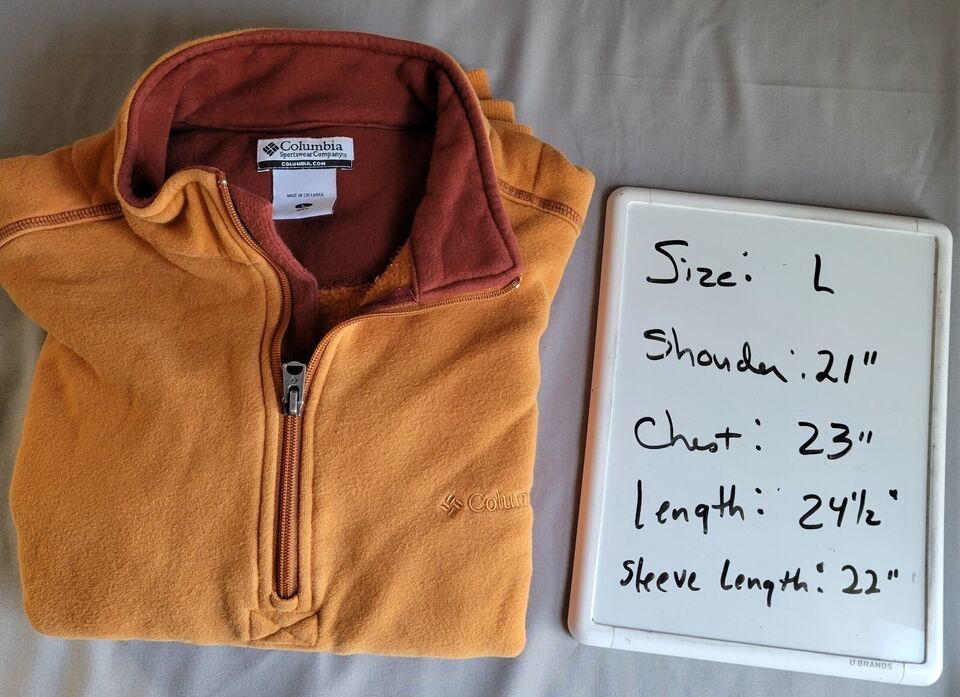 Columbia
Sportswear Company
COLUMBIA.COM
MADE IN SRI LANKA
L
Colum
Size: L
Shoulder: 21"
Chest: 23"
Length: 24 1/2"
Sleeve Length: 22"
U BRANDS